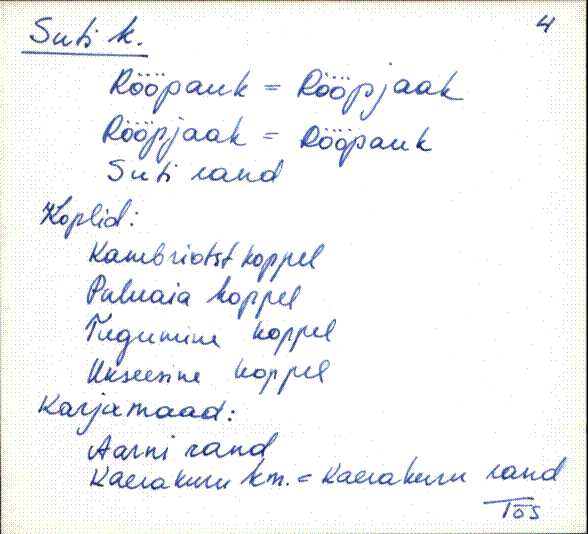 4
Suti k.
Rööpauk = Rööpjaak
Rööpjaak = Rööpauk
Suti rand
Koplid:
Kambriotst koppel
Puluaia koppel
Tugumine koppel
Ukseesine koppel
Karjamaad:
Aarni rand
Kaerakuru km. = Kaerakuru rand
Tõs